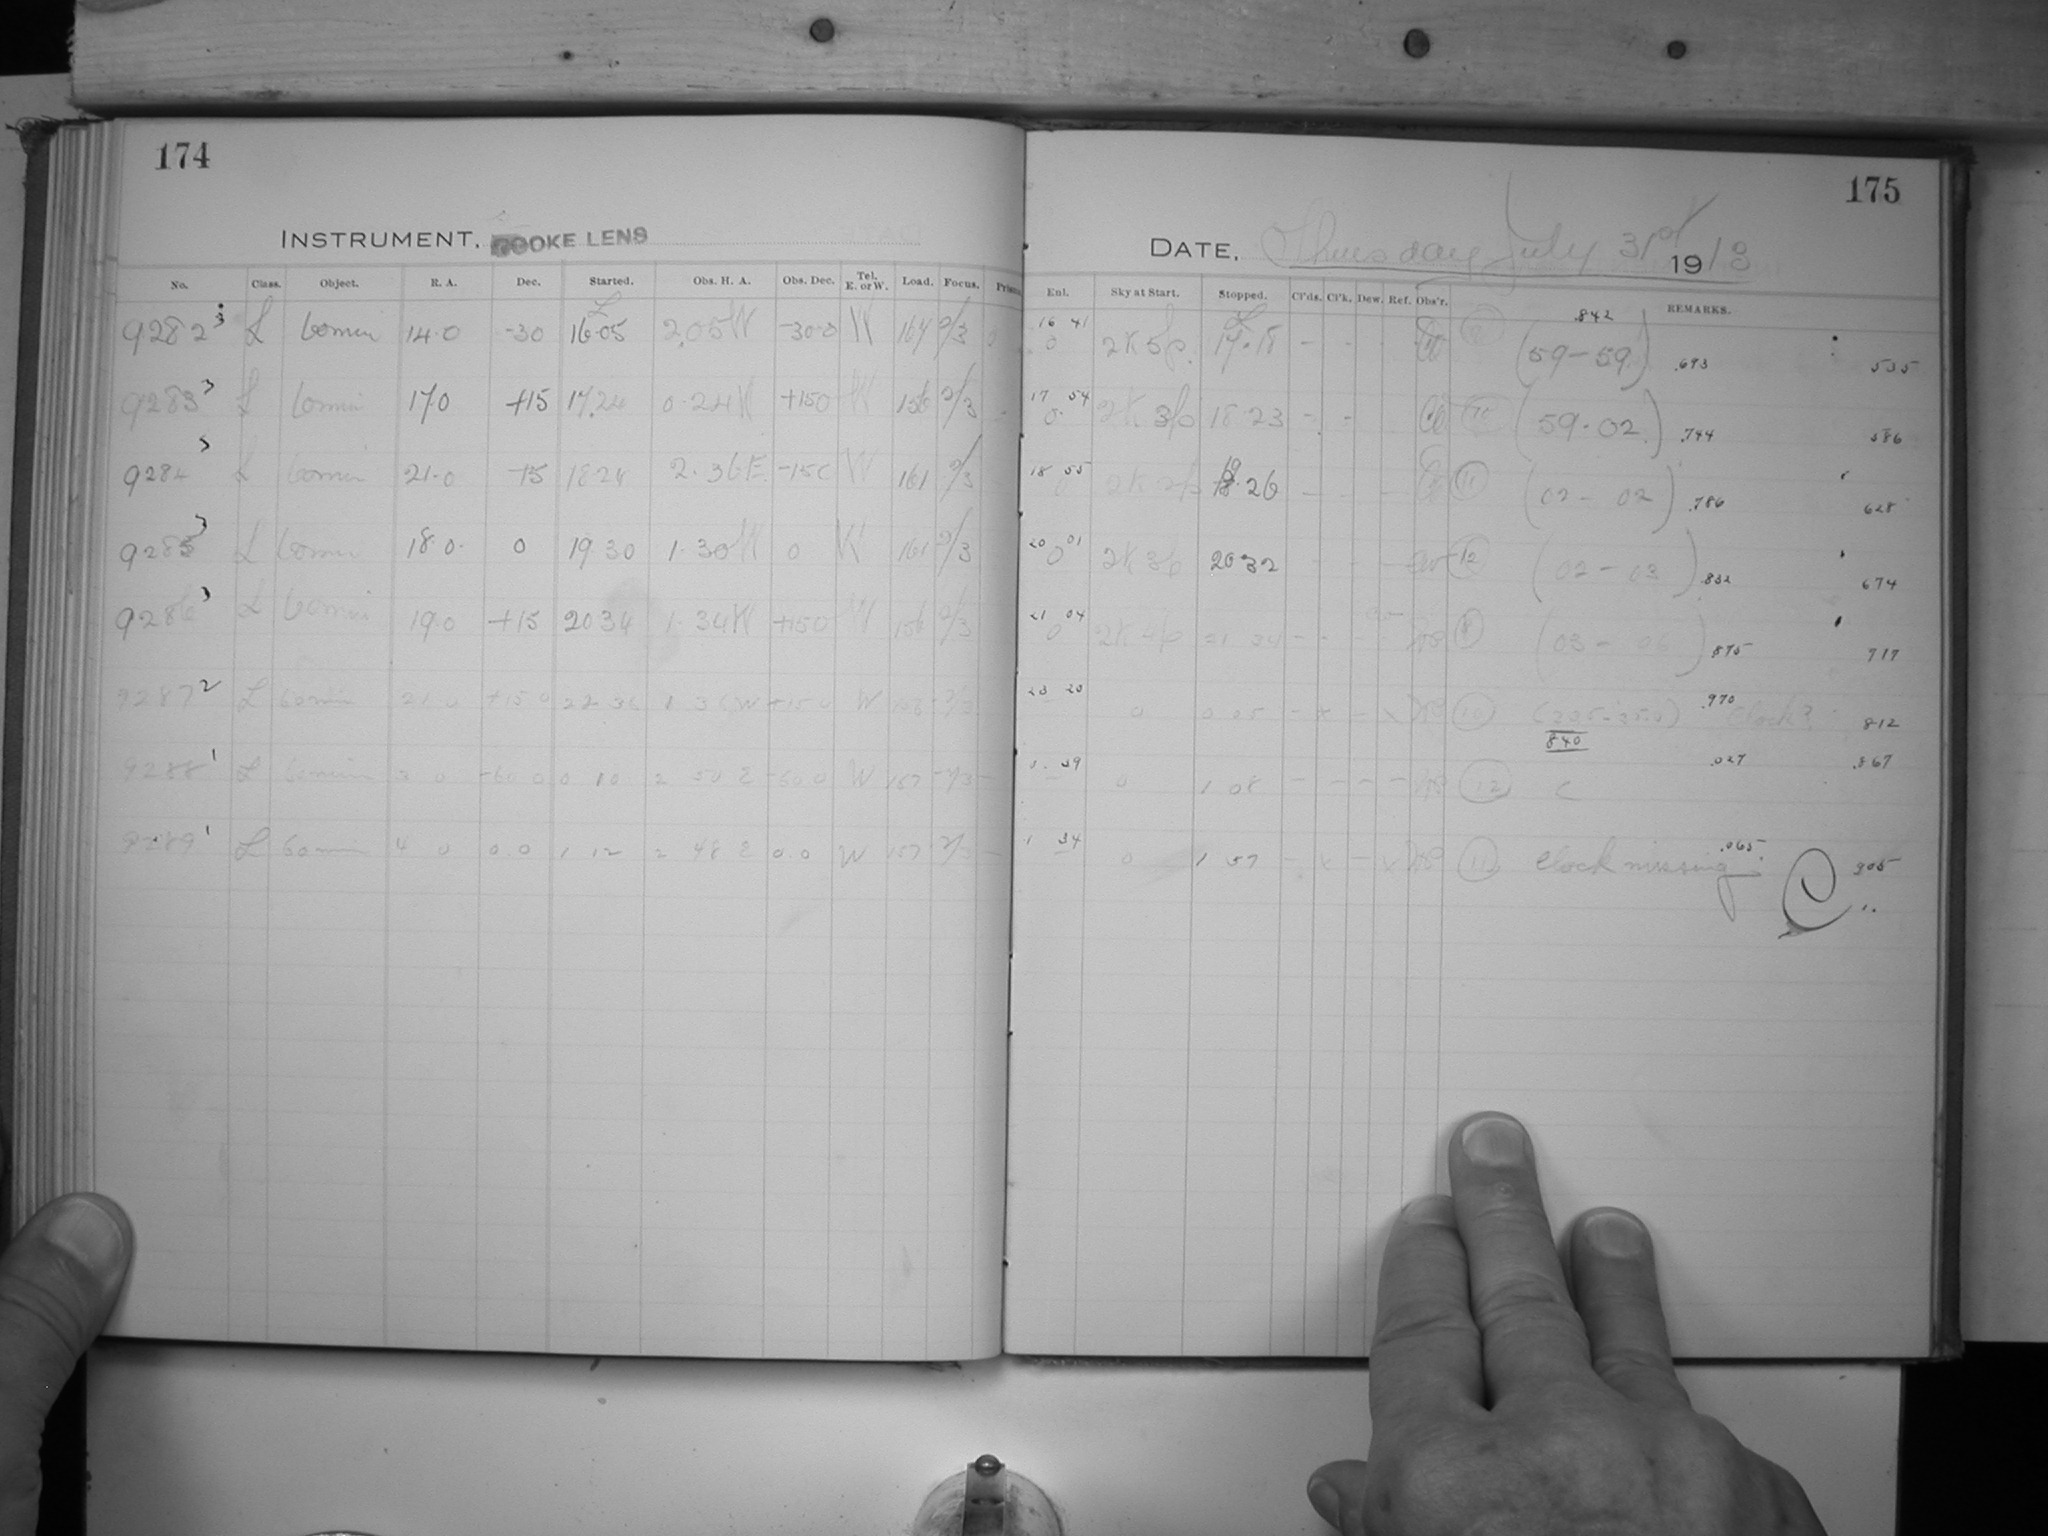 174
INSTRUMENT. COOKE LENS
No. Class. Object. R. A. Dec. Started. Obs. H. A. Obs. Dec. Tel. E. or W. Load. Focus.
9282 3 L 60 min 14.0 -30 16.05 2.05 W -30.0 W 164
9283 3 L 60 min 17.0 +15 17.24 0.24 W +15.0 W 156
9284 3 L 60 min 21.0 -15 18.24 2.36 E -15.0 W 161
9285 3 L 60 min 18.0 0 19 30 1.30 W 0 W 161
9286 3 L 60 min 19.0 +15 20 34 1.34 W +15.0 W 156
9287 2 L 60 min 21 0 +15 0 22 36 1 36 W +15.0 W 156
9288 1 L 60 min 3 0 -60 0 0 10 2 50 E -60.0 W 167
9289 1 L 60 min 4 0 0.0 1 12 2 48 E 0.0 W 157
175
DATE, Thursday July 31st 1913
Exl. Sky at Start. Stopped. Cl'ds. Cl'k. Dew. Ref. Obs'r. REMARKS.
16 41 0 (59-59) .842 .693 535
17 54 0 18 23 (59-02) .744 586
18 55 0 19.26 (11) (02-02) .786 628
20 01 0 20 32 (12) (02-03) .832 674
21 04 0 (9) (03-06) .875 717
23 20 0 0 05 - x - x (10) .970 Clock? 812
840
0 39 0 1 08 - - - - (12) C .027 .867
1 34 0 1 57 - x - x (11) Clock missing .065 905